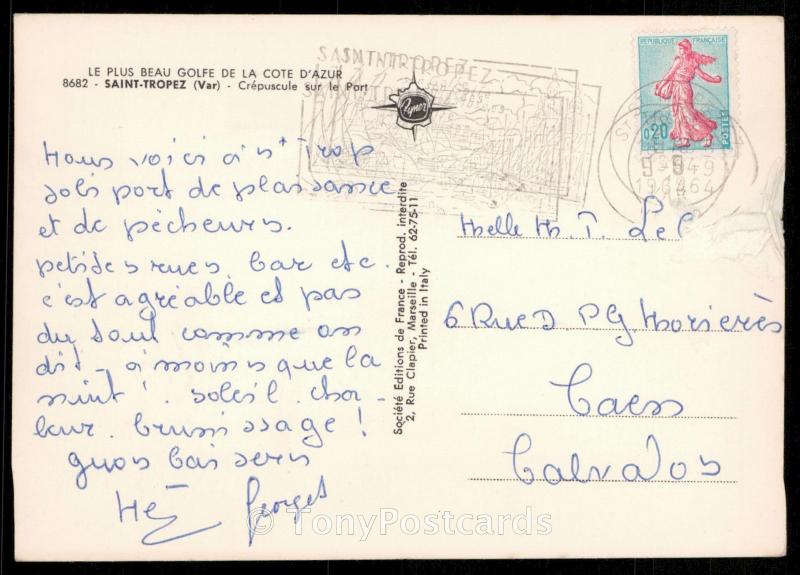 LE PLUS BEAU GOLFE DE LA COTE D'AZUR
8682 - SAINT-TROPEZ (Var) - Crépuscule sur le Port
SAINT TROPEZ
REPUBLIQUE FRANÇAISE
0,20
POSTES
1964
Nous voici à St Trop
jolis port de plaisance
et de pêcheurs.
petites rues, bar etc.
c'est agréable et pas
du tout comme on
dit - à moins que la
nuit ! soleil. cha-
leur. brunissage !
gros baisers
Georges
Société Editions de France - Reprod. interdite
2, Rue Clapier, Marseille - Tél. 62-75-11
Printed in Italy
Melle M. T. Lel
6 Rue D
Caen
Calvados
© TonyPostcards